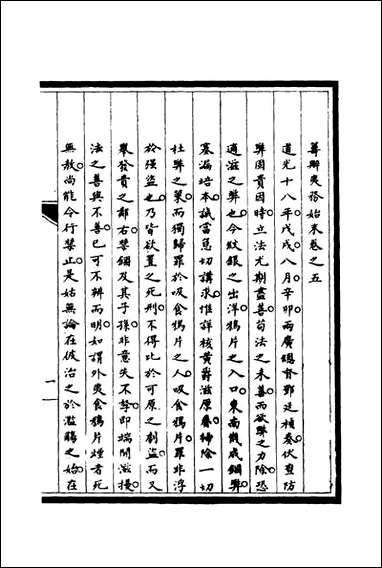 籌辦夷務始末卷之五
道光十八年戊戌八月辛卯兩廣總督鄧廷楨奏伏查防
弊固貴因時立法尤期盡善苟法之未善而欲弊之力除恐
適滋之弊也今紋銀之出洋鴉片之入口東南幾成錮弊
塞漏培本誠當急切講求惟詳核黃爵滋原奏掃除一切
杜弊之策而獨歸罪於吸食鴉片之人吸食鴉片罪非浮
於强盜也乃皆欲置之死刑不得比於可原之刼盜而又
舉發責之鄰右禁錮及其子孫非意失不孥即端開滋擾
法之善與不善已可不辨而明如謂外夷食鴉片煙者死
無赦尚能令行禁止是姑無論在彼治之於濫觴之始在